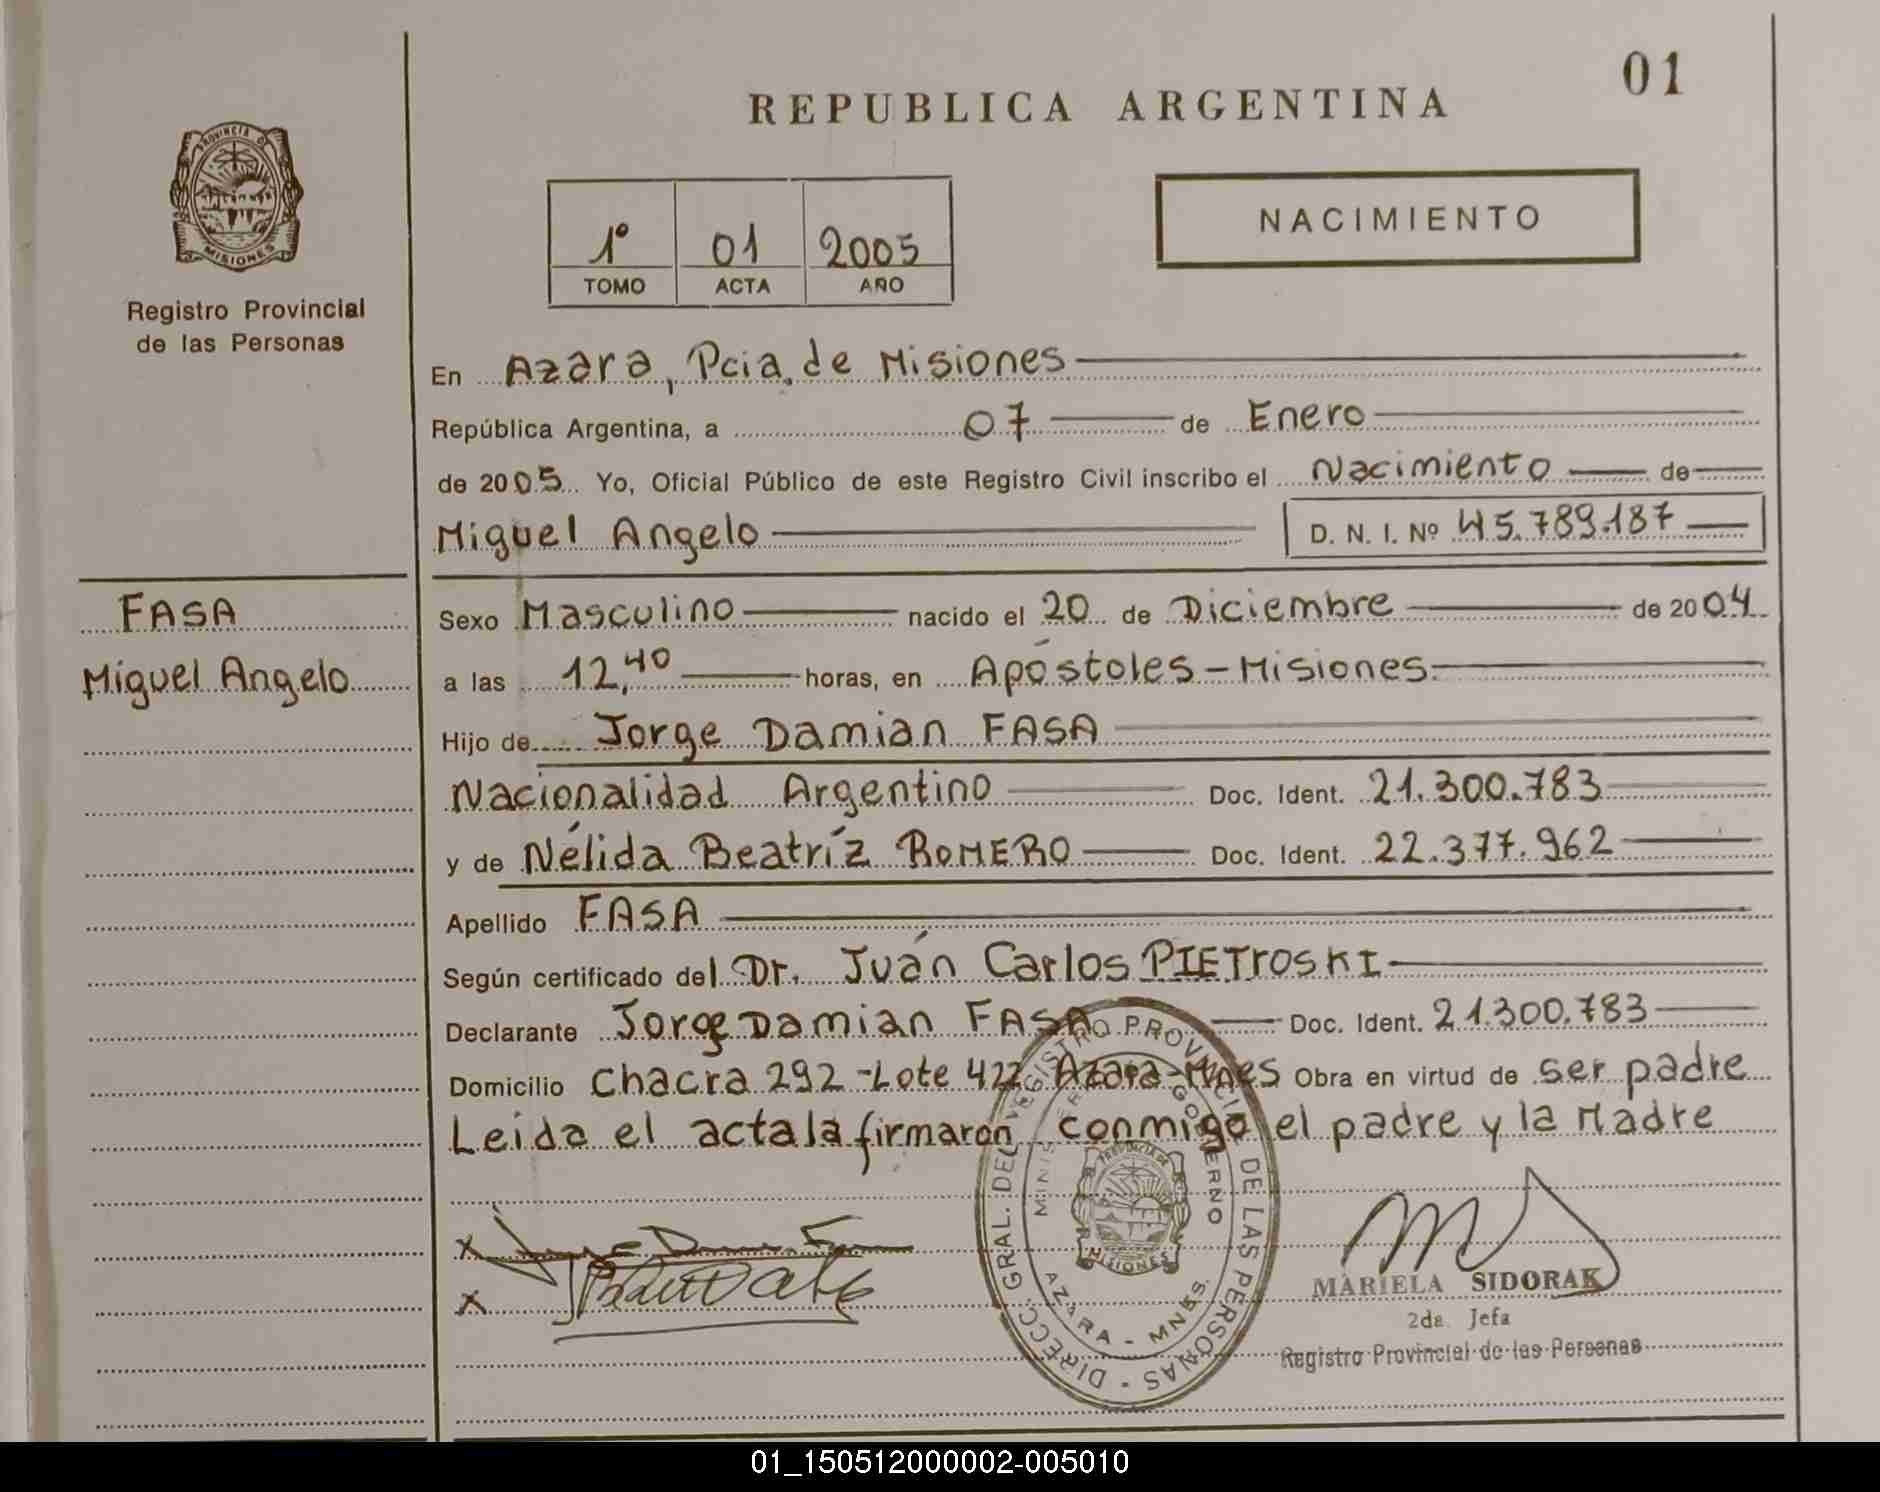 01
REPUBLICA ARGENTINA
PROVINCIA DE
MISIONES
Registro Provincial
de las Personas
1º 01 2005
TOMO ACTA AÑO
NACIMIENTO
En Azara, Pcia. de Misiones
República Argentina, a 07 de Enero
de 2005 Yo, Oficial Público de este Registro Civil inscribo el Nacimiento de
Miguel Angelo D. N. I. Nº 45.789.187
FASA
Miguel Angelo
Sexo Masculino nacido el 20 de Diciembre de 2004
a las 12,40 horas, en Apóstoles - Misiones.
Hijo de Jorge Damian FASA
Nacionalidad Argentino Doc. Ident. 21.300.783
y de Nélida Beatríz ROMERO Doc. Ident. 22.377.962
Apellido FASA
Según certificado del Dr. Juán Carlos PIETROSKI
Declarante Jorge Damian FASA Doc. Ident. 21.300.783
Domicilio Chacra 292 - Lote 422 Azara-Mnes Obra en virtud de ser padre
Leida el acta la firmaron conmigo el padre y la Madre
DIRECC. GRAL. DEL REGISTRO PROVINCIAL DE LAS PERSONAS
MINISTERIO GOBIERNO
AZARA - MNES.
PROVINCIA DE
MISIONES
x
x
MARIELA SIDORAK
2da. Jefa
Registro Provincial de las Personas
01_150512000002-005010